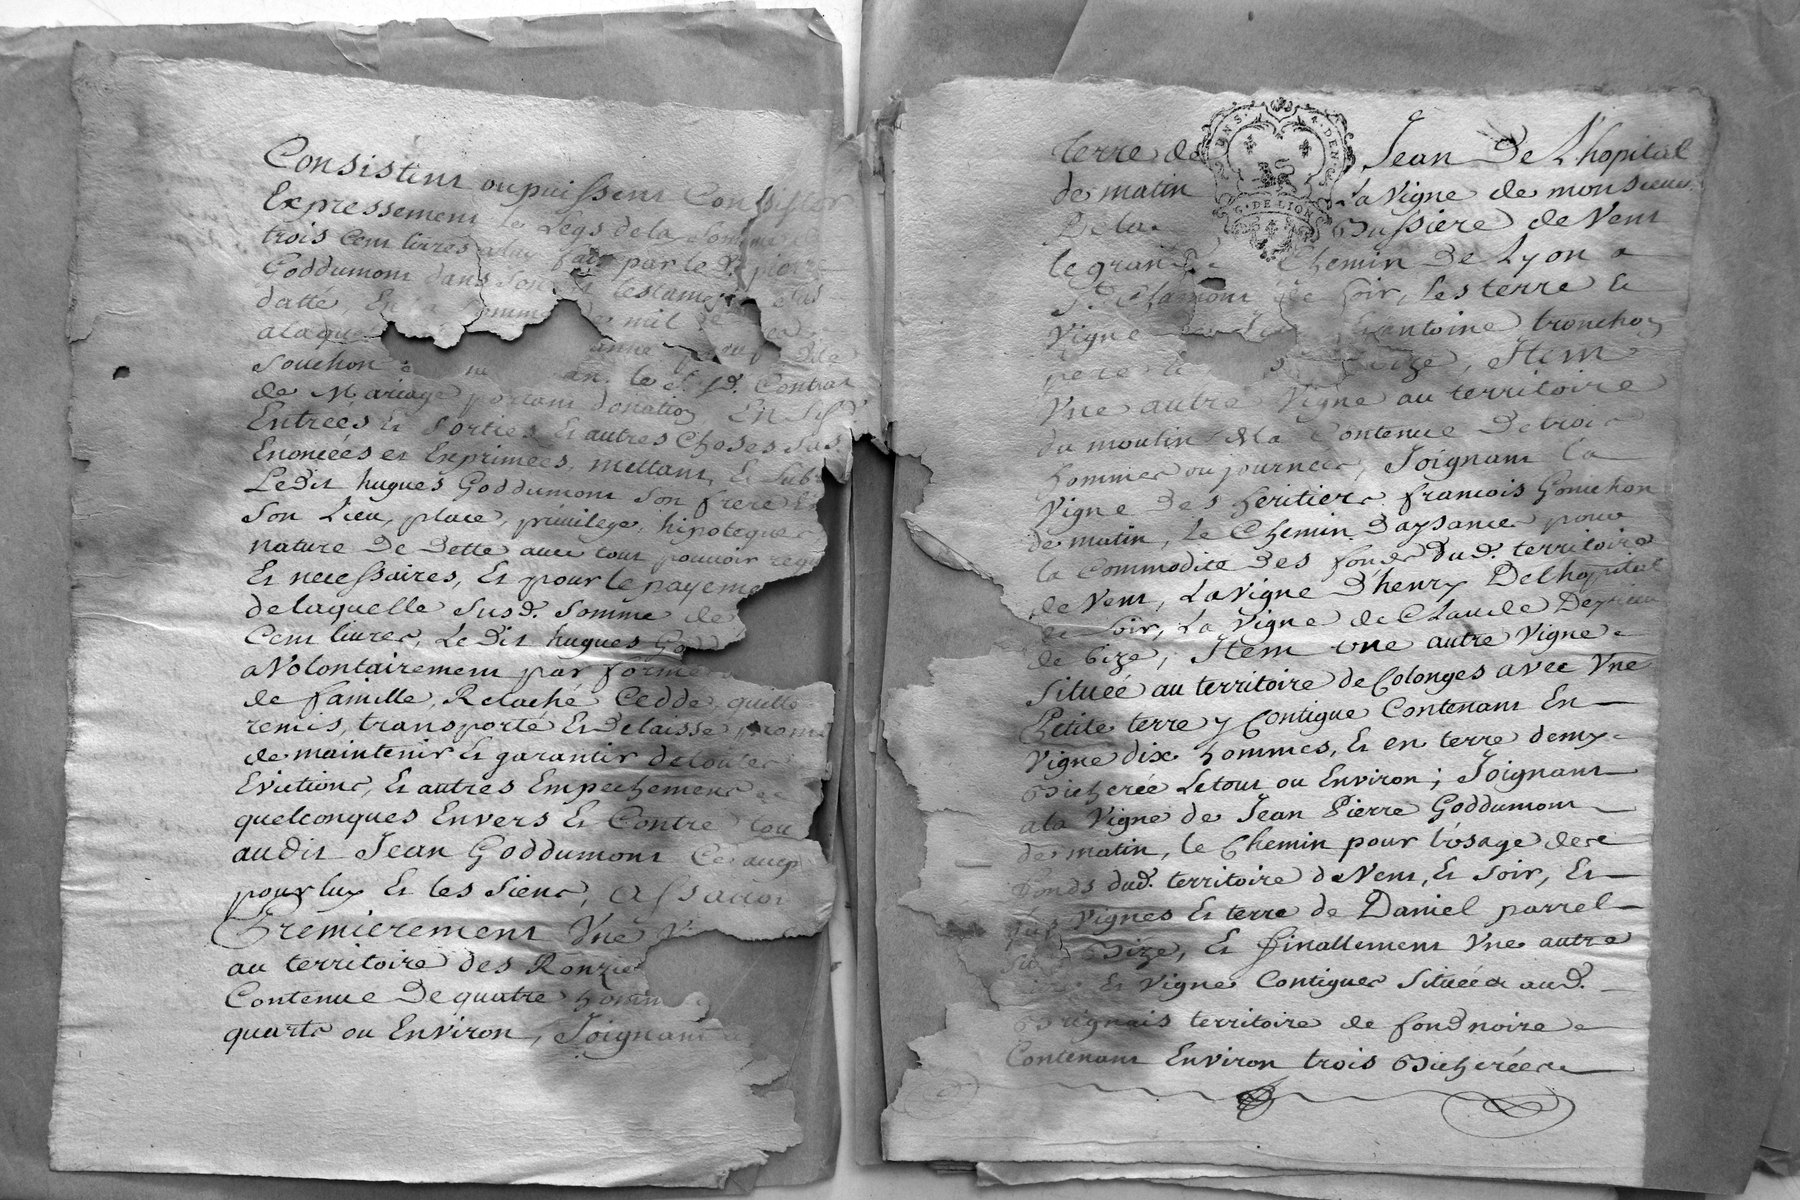 Consistent ou puissent Consister
Expressement le Legs de la Somme
trois Cent livres aluy fait par le Sr. pierre
Goddumont dans Son testament
datté, En la Somme de mil
alaque
Souchon le Contrat
de Mariage portant donation En
Entrées Et Sorties Et autres Choses Sus
Enoncées et Exprimées, mettant, Et Sub
Ledit hugues Goddumont Son frere
Son Lieu, place, privilege, hipoteques
nature De Dette avec tout pouvoir req
Et necessaires, Et pour le payeme
delaquelle Susd. Somme de
Cent livres, Le Dit hugues God
a Volontairement par forme
de famille, Relaché Cedde, quitté
remis, transporté Et Delaisse prome
de maintenir Et garantir de toutes
Evictions, Et autres Empechemens
quelconques Envers Et Contre tou
audit Jean Goddumont
pour luy Et les Siens, A Scavoir
Premierement Vne
au territoire des Ronzie
Contenue De quatre homm
quarts ou Environ, Joignant
terre de Jean De L'hopital
de matin La Vigne de monsieur
De la Bussiere de Vent
le grand Chemin De Lyon a
St. Chamont de Soir, Les terre Et
Vigne antoine tronchon
bize, Item
Vne autre Vigne au territoire
du moulin De la Contenue De trois
hommes ou journees, Joignant la
Vigne Des heritiers francois Gonichon
de matin, Le Chemin Daysance pour
la Commodité Des fonds Dud. territoire
de Vent, La Vigne D'henry Delhopital
de Soir, La Vigne de Claude
de bize; Item vne autre Vigne
Située au territoire de Colonges avec Vne
Petite terre y Contigue Contenant En
Vigne dix hommes, Et en terre demy
Bicherée Letout ou Environ; Joignant
ala Vigne de Jean Pierre Goddumont
de matin, le Chemin pour l'vsage des
fonds dud. territoire de Vent, Et Soir, Et
Vignes Et terre de Daniel parrel
Bize, Et finallement Vne autre
Et Vigne Contigues Située aud.
Brignais territoire de fond noire
Contenant Environ trois Bicherées
UNS. 4. DEN.
G. DE LION